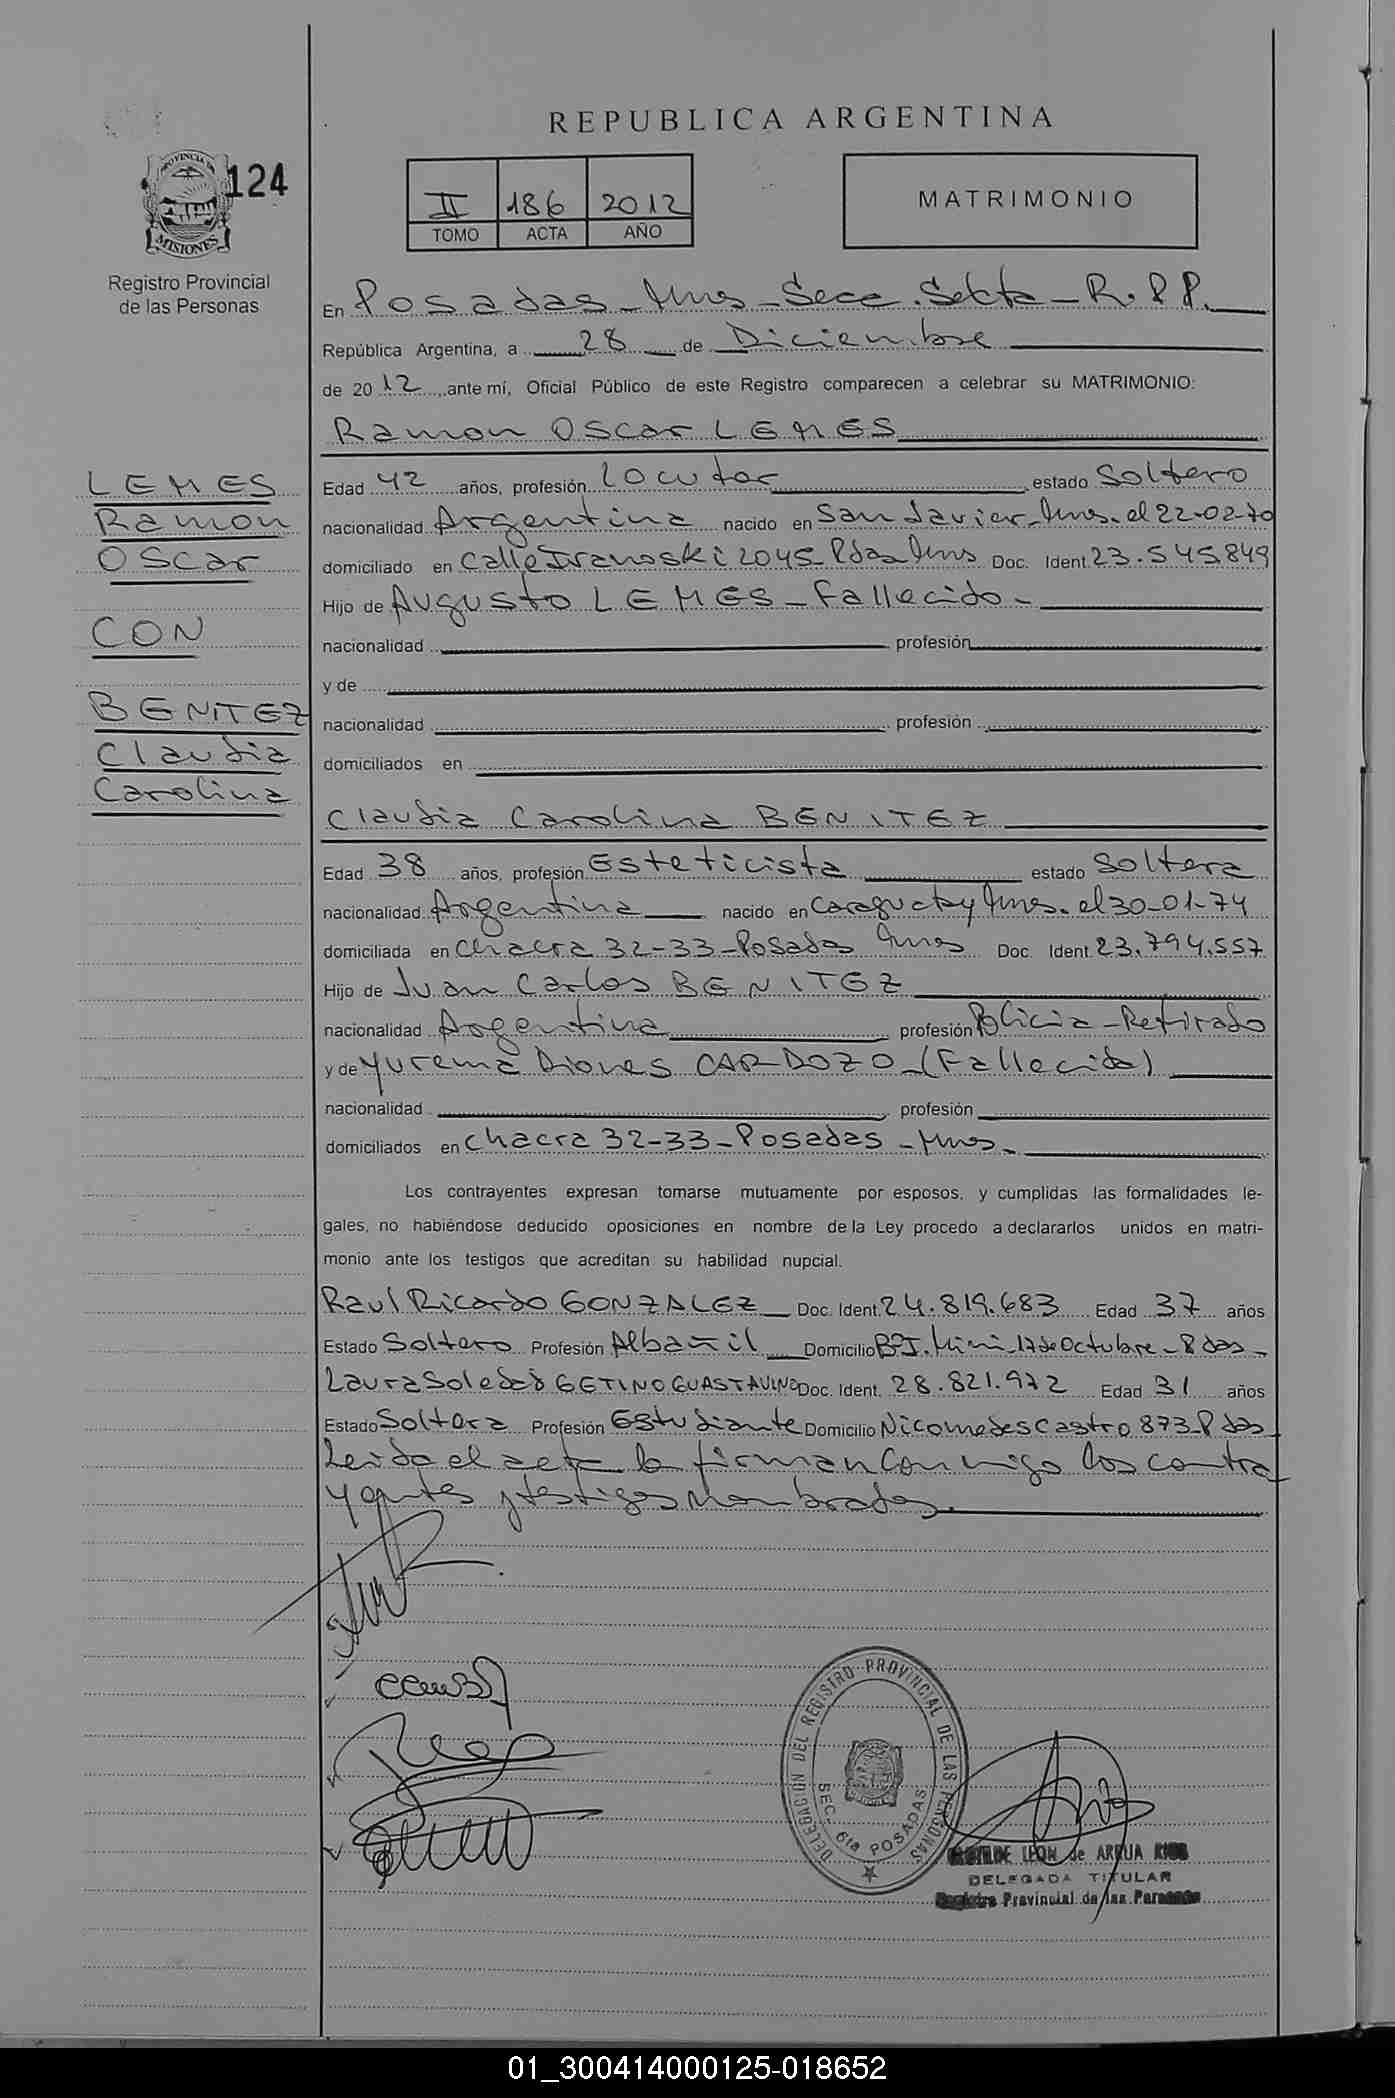 REPUBLICA ARGENTINA
PROVINCIA DE
MISIONES
124
Registro Provincial
de las Personas
II 186 2012
TOMO ACTA AÑO
MATRIMONIO
En Posadas - Mnes - Secc. Sexta - R.P.P.
República Argentina, a 28 de Diciembre
de 2012 ante mí, Oficial Público de este Registro comparecen a celebrar su MATRIMONIO:
Ramon Oscar LEMES
LEMES
Ramon
Oscar
CON
BENITEZ
Claudia
Carolina
Edad 42 años, profesión Locutor estado Soltero
nacionalidad Argentina nacido en San Javier - Mnes. el 22-02-70
domiciliado en Calle 2045 - Pdas Mnes Doc. Ident. 23.545849
Hijo de Augusto LEMES - Fallecido -
nacionalidad profesión
y de
nacionalidad profesión
domiciliados en
Claudia Carolina BENITEZ
Edad 38 años, profesión Esteticista estado Soltera
nacionalidad Argentina nacido en Caraguatay Mnes. el 30-01-74
domiciliada en Chacra 32-33 - Posadas Mnes Doc. Ident. 23.794.557
Hijo de Juan Carlos BENITEZ
nacionalidad Argentina profesión Policia - Retirado
y de Yurema Diones CARDOZO - (Fallecida)
nacionalidad profesión
domiciliados en Chacra 32-33 - Posadas - Mnes -
Los contrayentes expresan tomarse mutuamente por esposos, y cumplidas las formalidades le-
gales, no habiéndose deducido oposiciones en nombre de la Ley procedo a declararlos unidos en matri-
monio ante los testigos que acreditan su habilidad nupcial.
Raul Ricardo GONZALEZ Doc. Ident. 24.819.683 Edad 37 años
Estado Soltero Profesión Albañil Domicilio 17 de Octubre - Pdas -
Laura Soledad GETINO GUASTAVINO Doc. Ident. 28.821.972 Edad 31 años
Estado Soltera Profesión Estudiante Domicilio Nicomedes Castro 873 - Pdas -
Leida el acta la firman conmigo los contra
yentes y testigos nombrados.
DELEGACION DEL REGISTRO PROVINCIAL DE LAS PERSONAS
SEC. 6ta POSADAS
LEON de ARRUA RIOS
DELEGADA TITULAR
Registro Provincial de las Personas
01_300414000125-018652